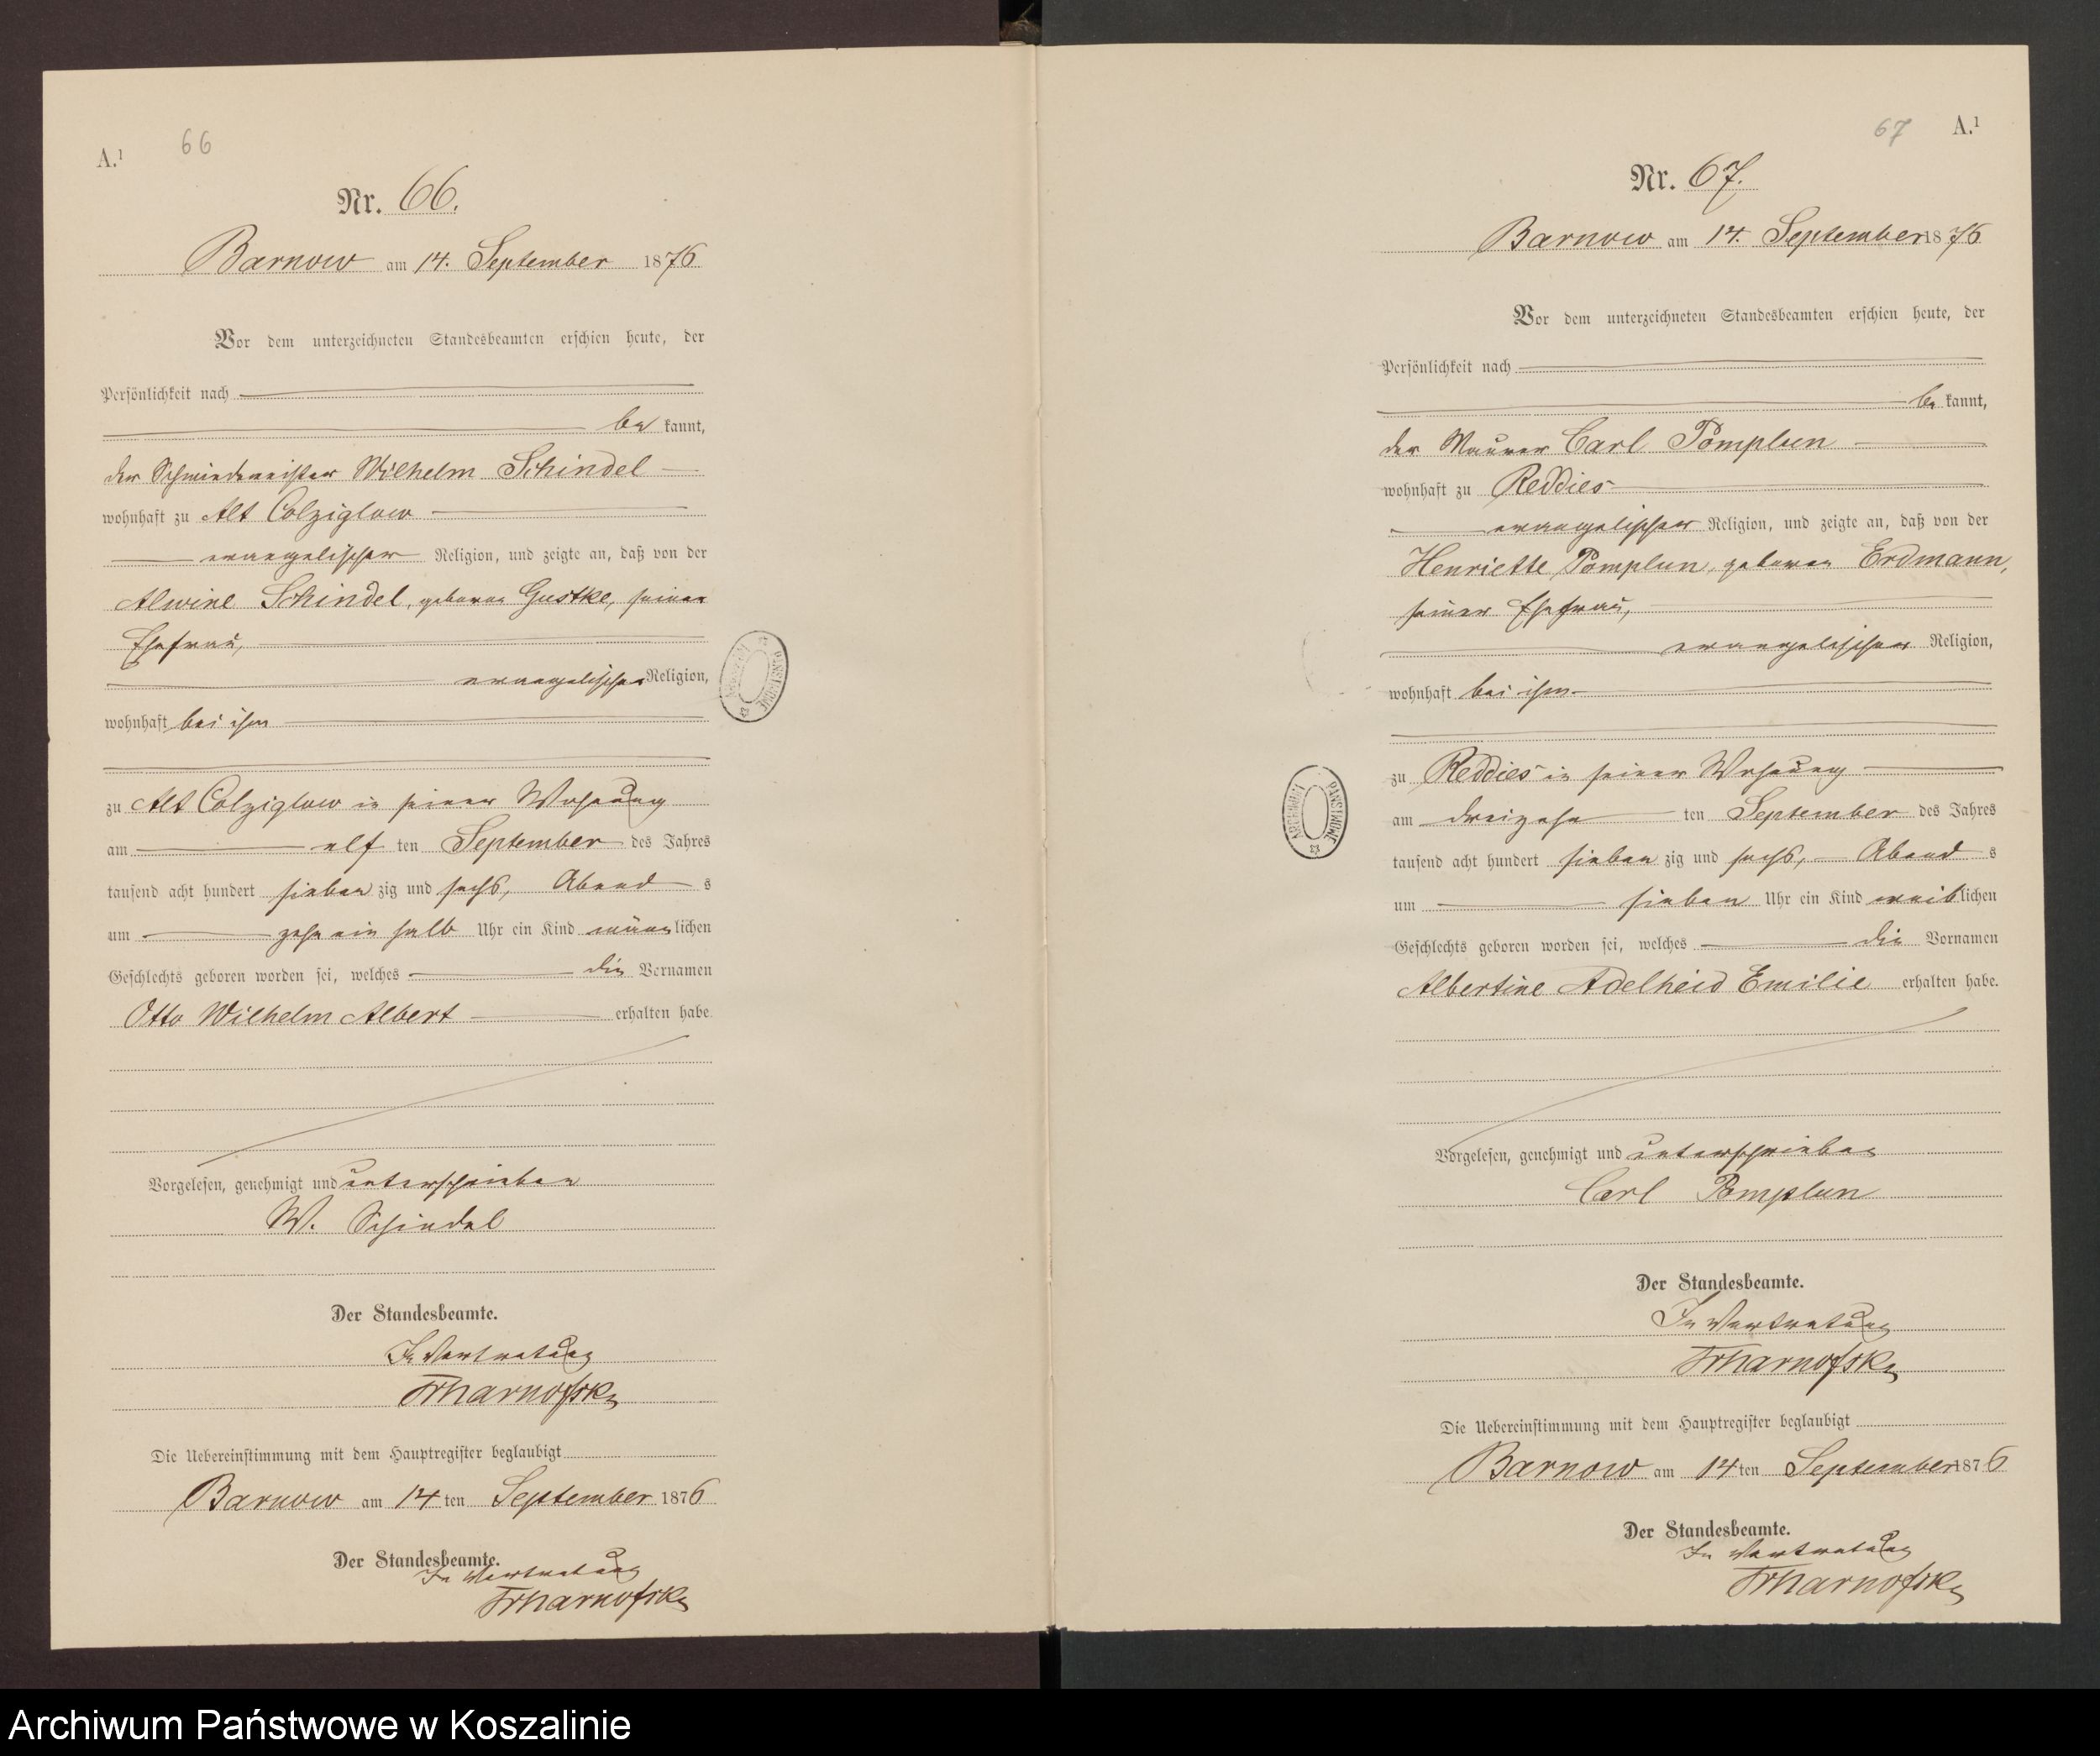 A.¹ 66
Nr. 66.
Barnow am 14. September 1876
Vor dem unterzeichneten Standesbeamten erschien heute, der
Persönlichkeit nach
be kannt,
der Schmiedemeister Wilhelm Schindel
wohnhaft zu Alt Colziglow
evangelischer Religion, und zeigte an, daß von der
Alwine Schindel, geboren Gustke, seiner
Ehefrau,
evangelischer Religion,
wohnhaft bei ihm
zu Alt Colziglow in seiner Wohnung
am elf ten September des Jahres
tausend acht hundert sieben zig und sechs, Abend s
um zehn ein halb Uhr ein Kind männ lichen
Geschlechts geboren worden sei, welches die Vornamen
Otto Wilhelm Albert erhalten habe.
Vorgelesen, genehmigt und unterschrieben
W. Schindel
Der Standesbeamte.
In Vertretung
Die Uebereinstimmung mit dem Hauptregister beglaubigt
Barnow am 14 ten September 1876
Der Standesbeamte.
In Vertretung
ARCHIWUM PAŃSTWOWE
67 A.¹
Nr. 67.
Barnow am 14. September 1876
Vor dem unterzeichneten Standesbeamten erschien heute, der
Persönlichkeit nach
be kannt,
der Maurer Carl Pomplun
wohnhaft zu Reddies
evangelischer Religion, und zeigte an, daß von der
Henriette Pomplun, geboren Erdmann,
seiner Ehefrau,
evangelischer Religion,
wohnhaft bei ihm
zu Reddies in seiner Wohnung
am dreizehn ten September des Jahres
tausend acht hundert sieben zig und sechs, Abend s
um sieben Uhr ein Kind weib lichen
Geschlechts geboren worden sei, welches die Vornamen
Albertine Adelheid Emilie erhalten habe.
Vorgelesen, genehmigt und unterschrieben
Carl Pomplun
Der Standesbeamte.
In Vertretung
Die Uebereinstimmung mit dem Hauptregister beglaubigt
Barnow am 14 ten September 1876
Der Standesbeamte.
In Vertretung
ARCHIWUM PAŃSTWOWE
Archiwum Państwowe w Koszalinie